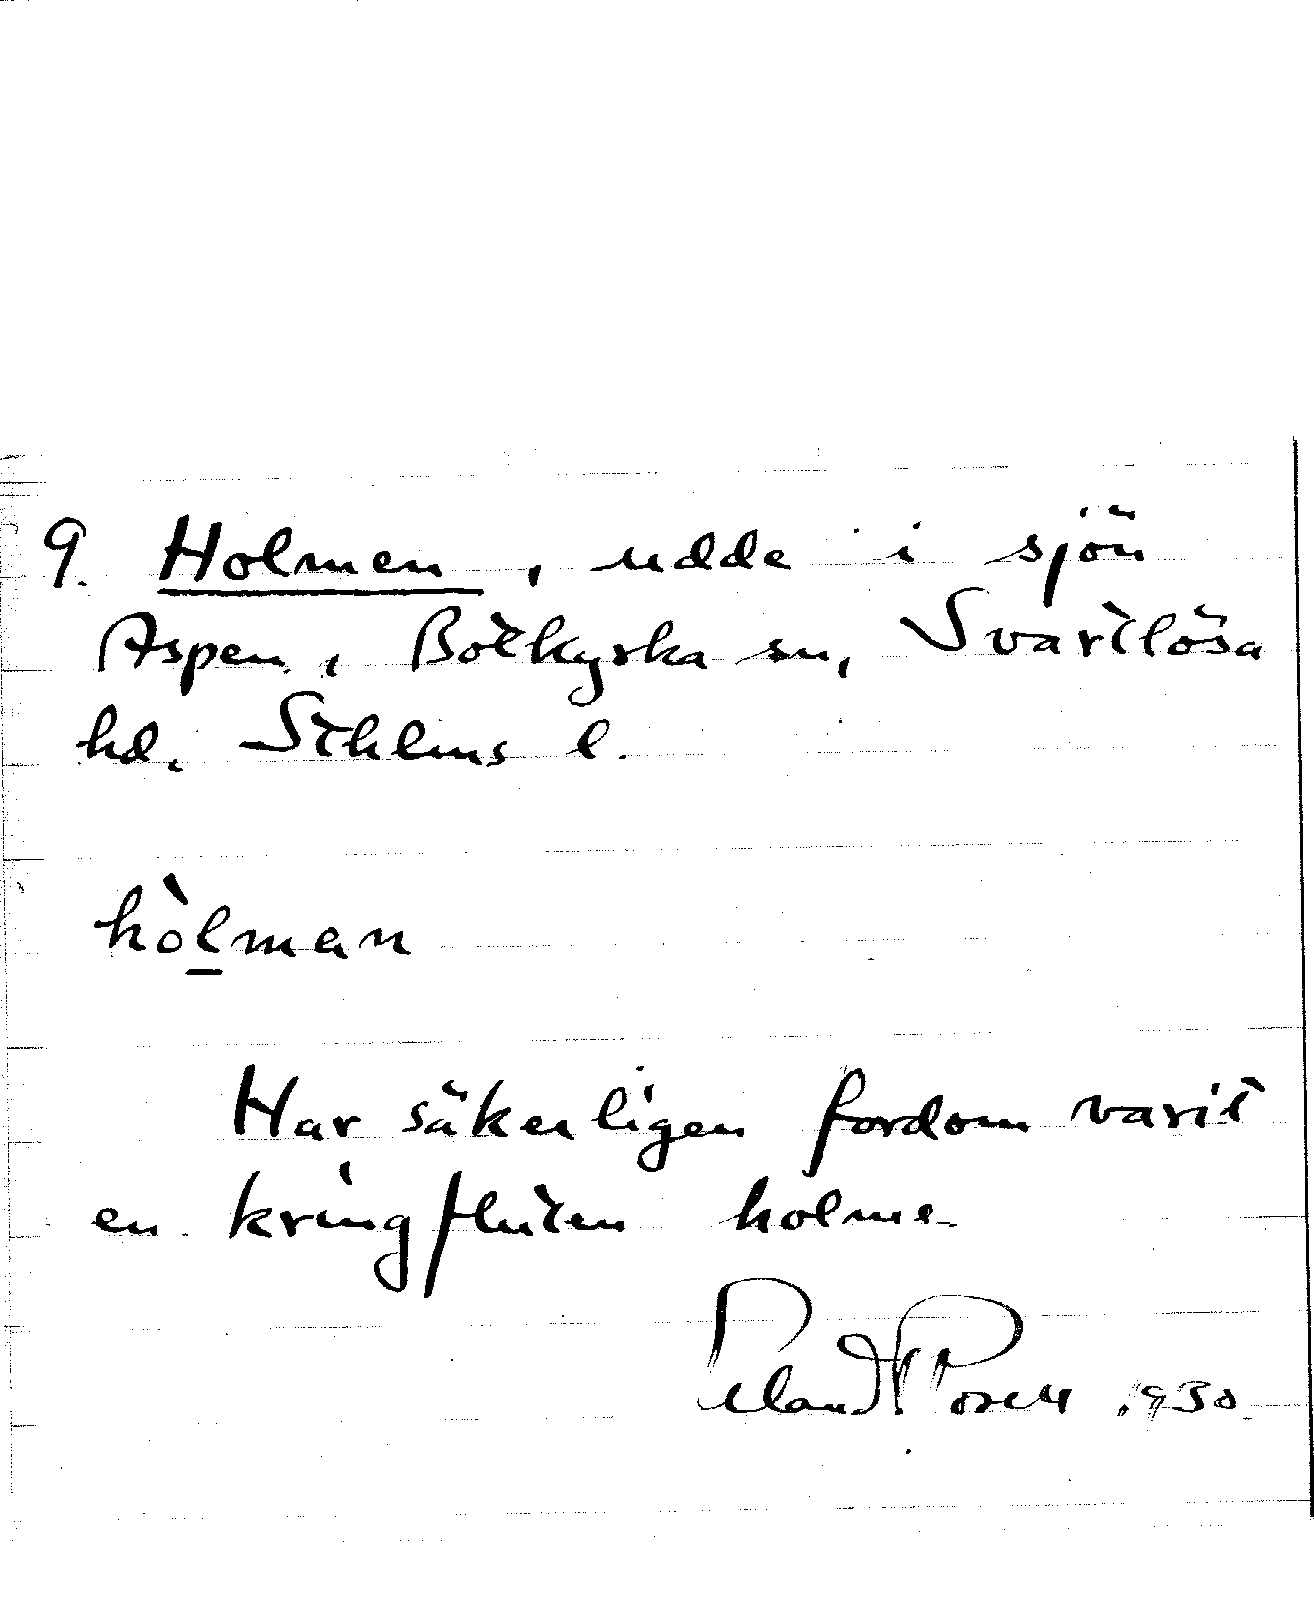 9. Holmen, udde i sjön
Aspen, Botkyrka sn, Svartlösa
hd. Sthlms l.
hòlman
Har säkerligen fordom varit
en kringfluten holme
Erland Rosell 1930